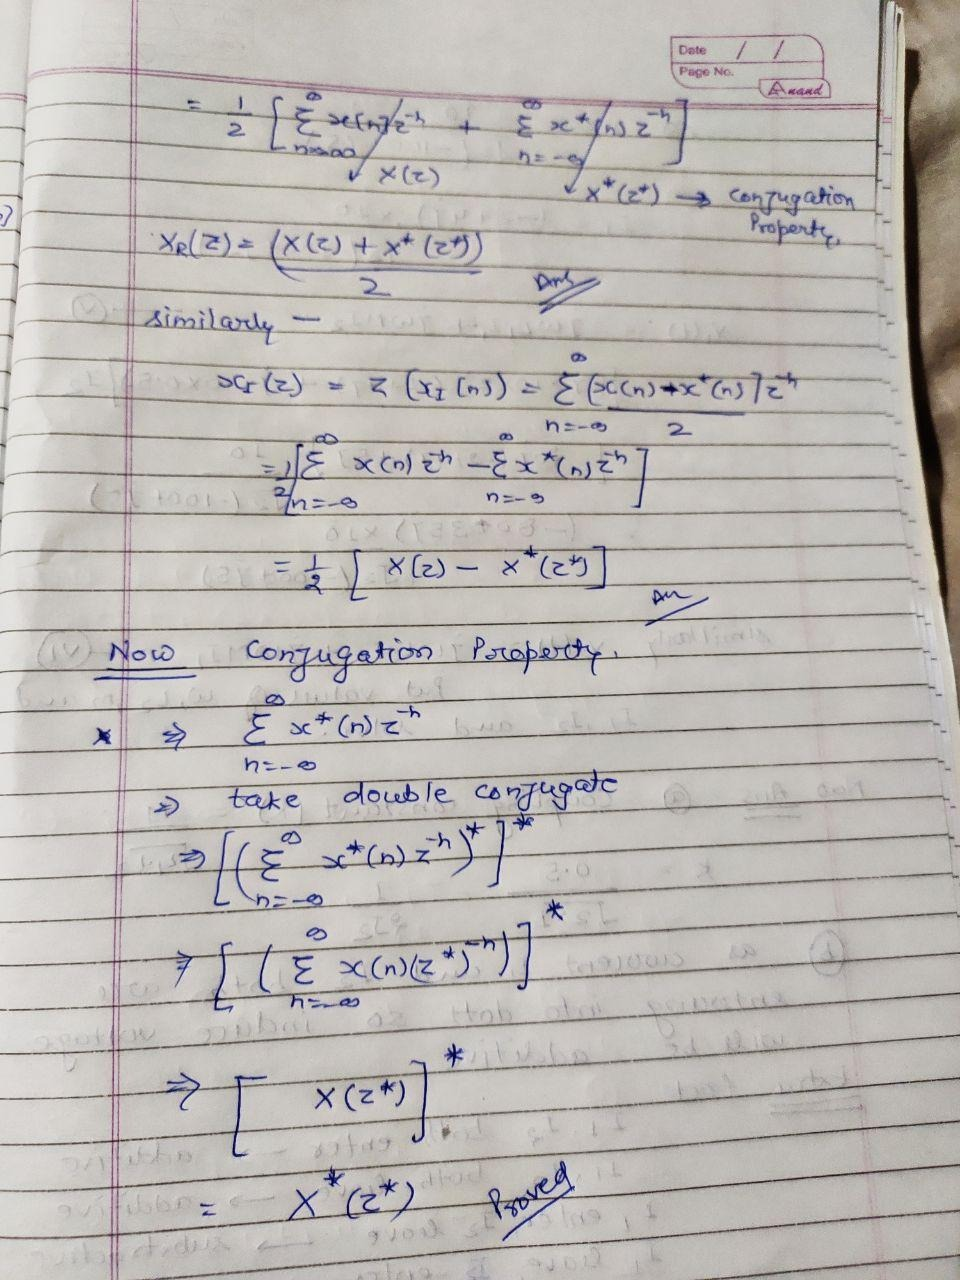 Date / /
Page No.
Anand
= 1/2 [ ∞ Σ n=-∞ x(n) z^-n + ∞ Σ n=-∞ x*(n) z^-n ]
X(z)
X*(z*) → Conjugation
Property,
X_R(z) = (X(z) + X*(z*)) / 2
Ans
similarly –
x_I(z) = Z (x_I(n)) = ∞ Σ n=-∞ (x(n) - x*(n)] / 2 z^-n
= 1/2 [ ∞ Σ n=-∞ x(n) z^-n - ∞ Σ n=-∞ x*(n) z^-n ]
= 1/2 [ X(z) - X*(z*) ]
An
Now Conjugation Property.
* ⇒ ∞ Σ n=-∞ x*(n) z^-n
⇒ take double conjugate
⇒ [ ( ∞ Σ n=-∞ x*(n) z^-n )* ]*
⇒ [ ( ∞ Σ n=-∞ x(n) (z*)^-n ) ]*
⇒ [ X(z*) ]*
= X*(z*) Proved